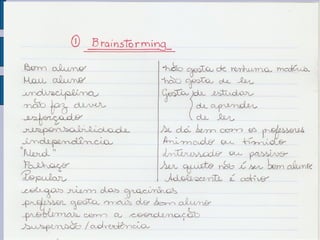 ① Brainstorming
Bom aluno
Mau aluno
indisciplina
não faz dever
esforçado
responsabilidade
independência
"Nerd"
Palhaço
Popular
colegas riem das gracinhas
professor gosta mais do bom aluno
problemas com a coordenação
suspensão/advertência
não gosta de nenhuma matéria
não gosta de ler
Gosta de estudar
de aprender
de ler
Se dá bem com os professores
Animado ou tímido
Interessado ou passivo
Ser quieto não é ser bom aluno
Adolescente é ativo